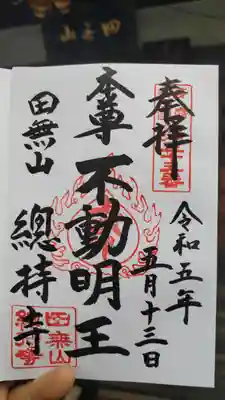 奉拝
令和五年
五月十三日
本尊
不動明王
田無山
總持寺
田無山